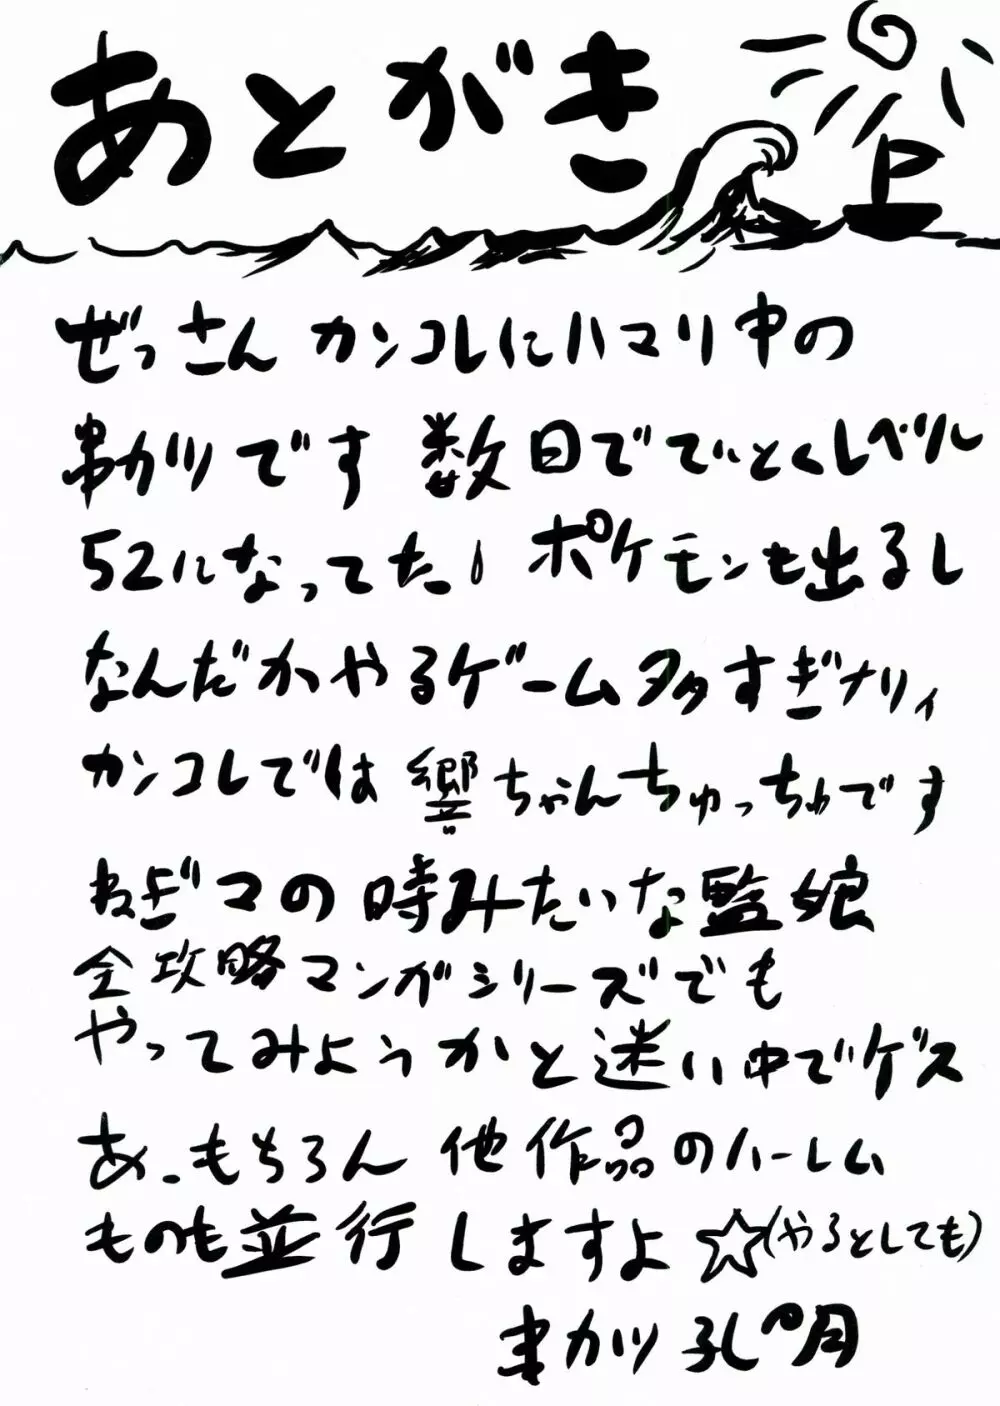 あとがき
ぜっさんカンコレにハマり中の
串カツです 数日でていとくレベル
52になってた! ポケモンも出るし
なんだかやるゲーム多すぎナリィ
カンコレでは 響ちゃんちゅっちゅです
ねぎマの時みたいな監娘
全攻略マンガシリーズでも
やってみようかと迷い中でゲス
あ、もちろん 他作品のハーレム
ものも並行しますよ☆(やるとしても)
串カツ孔明